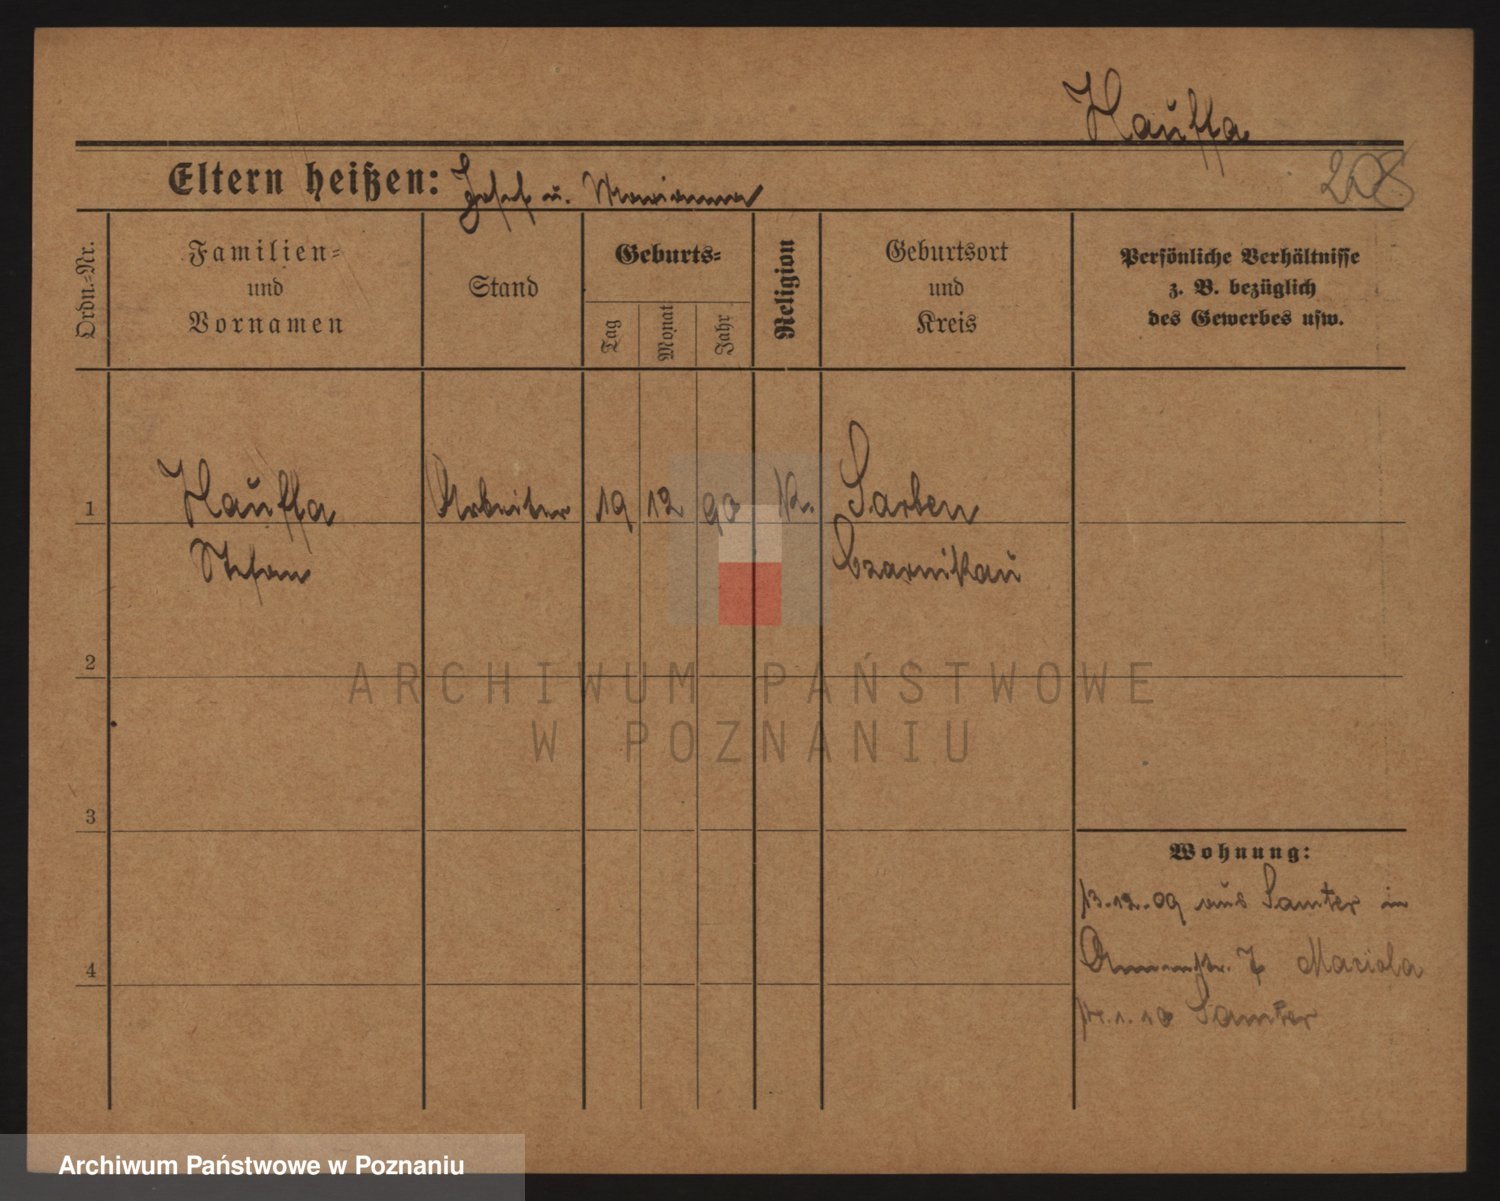 Hauffa
208
Eltern heißen: Josef u. Marianna
Ordn.-Nr.
Familien-
und
Vornamen
Stand
Geburts-
Tag
Monat
Jahr
Religion
Geburtsort
und
Kreis
Persönliche Verhältnisse
z. B. bezüglich
des Gewerbes usw.
1 Hauffa Arbeiter 19 12 90 K. Sarben
Stefan Czarnikau
2
3
4
Wohnung:
13.12.09 aus Samter in
7
Samter
ARCHIWUM PAŃSTWOWE
W POZNANIU
Archiwum Państwowe w Poznaniu